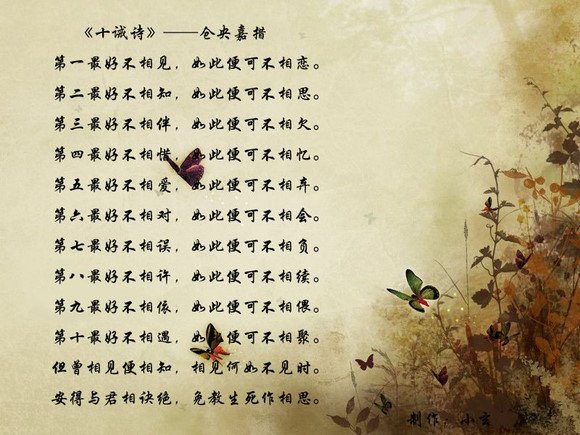 《十诫诗》——仓央嘉措
第一最好不相见，如此便可不相恋。
第二最好不相知，如此便可不相思。
第三最好不相伴，如此便可不相欠。
第四最好不相惜，如此便可不相忆。
第五最好不相爱，如此便可不相弃。
第六最好不相对，如此便可不相会。
第七最好不相误，如此便可不相负。
第八最好不相许，如此便可不相续。
第九最好不相依，如此便可不相偎。
第十最好不相遇，如此便可不相聚。
但曾相见便相知，相见何如不见时。
安得与君相诀绝，免教生死作相思。
制作：小玄